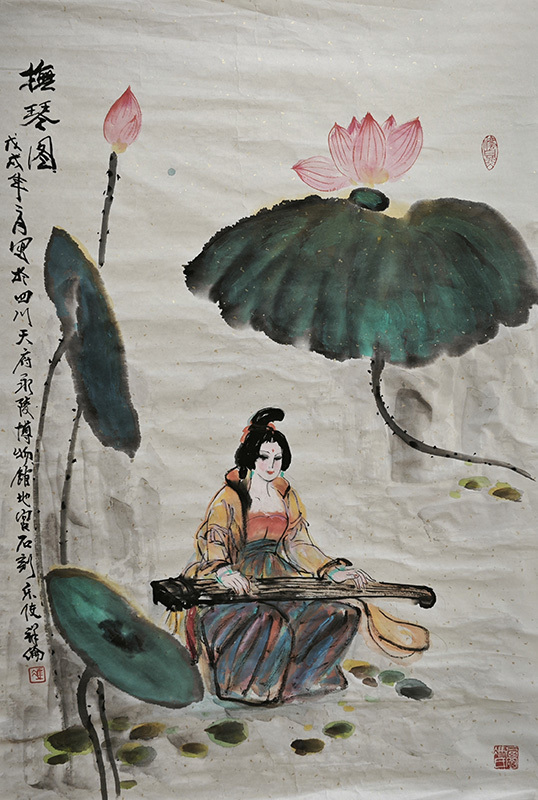 撫琴图
戊戌年二月写於四川天府永陵博物馆地宫石刻乐伎